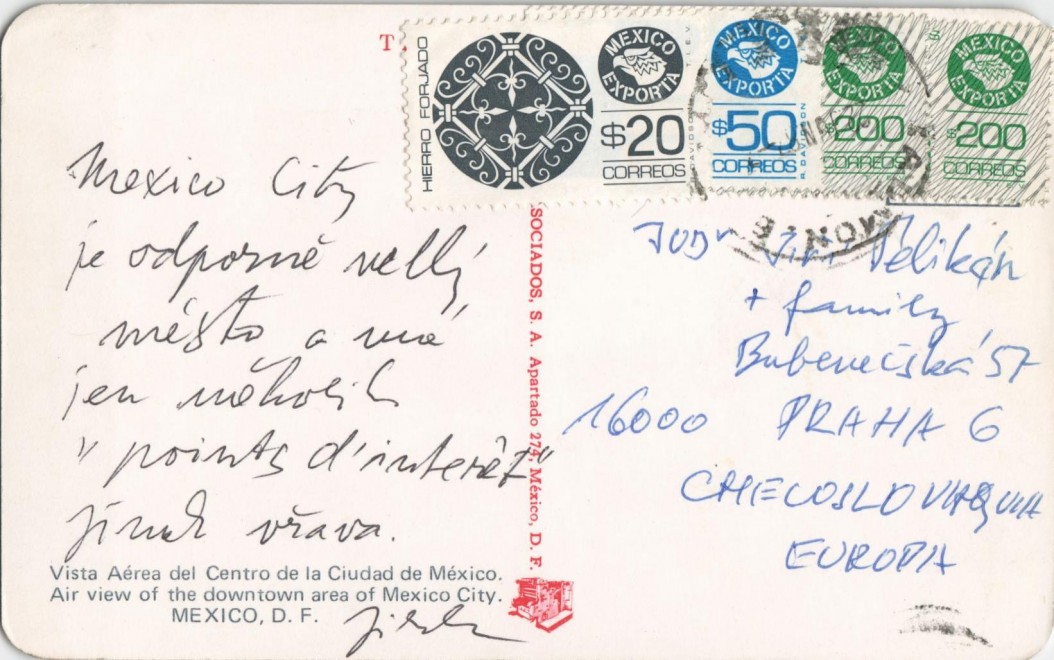 T.
HIERRO FORJADO
MEXICO EXPORTA
$20
CORREOS
T.I.E.V.
MEXICO EXPORTA
$50
CORREOS
R. DAVIDSON
MEXICO EXPORTA
$200
CORREOS
MEXICO EXPORTA
$200
CORREOS
Mexico City
je odporně velký
město a má
jen několik
"points d'interêt"
jinak vřava.
Vista Aérea del Centro de la Ciudad de México.
Air view of the downtown area of Mexico City.
MEXICO, D. F.
SOCIADOS, S. A. Apartado 274, México, D. F.
JUDr Jiří Pelikán
+ family
Bubenečská 57
16000 PRAHA 6
CHECOSLOVAQUIA
EUROPA